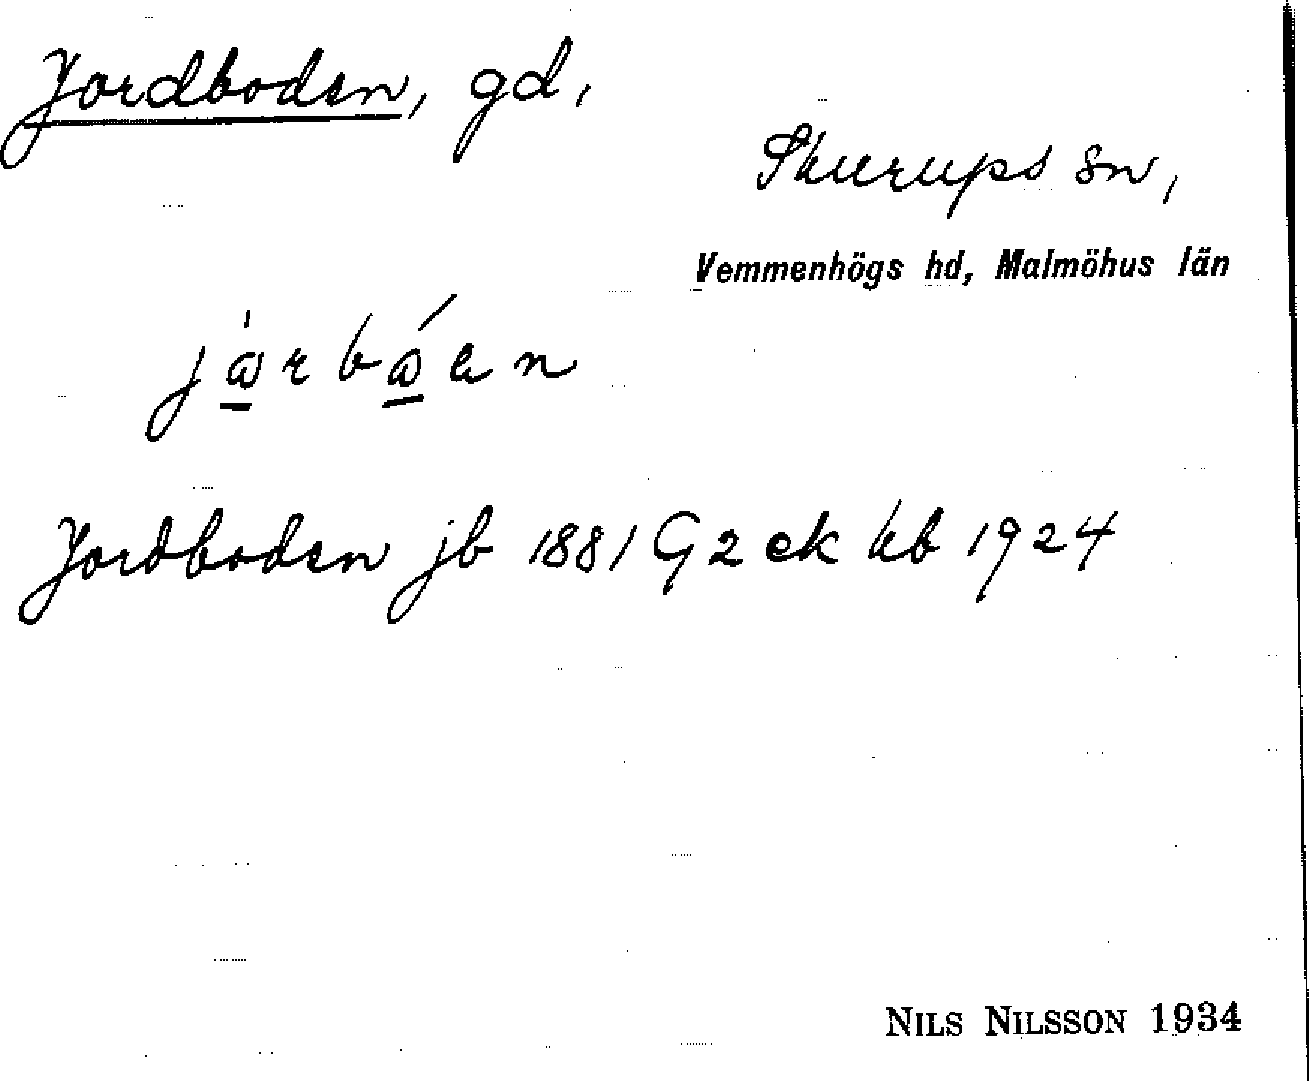 Jordboden, gd,
Skurups sn,
Vemmenhögs hd, Malmöhus län
Jordboden jb 1881 G2 ek kb 1924
NILS NILSSON 1934